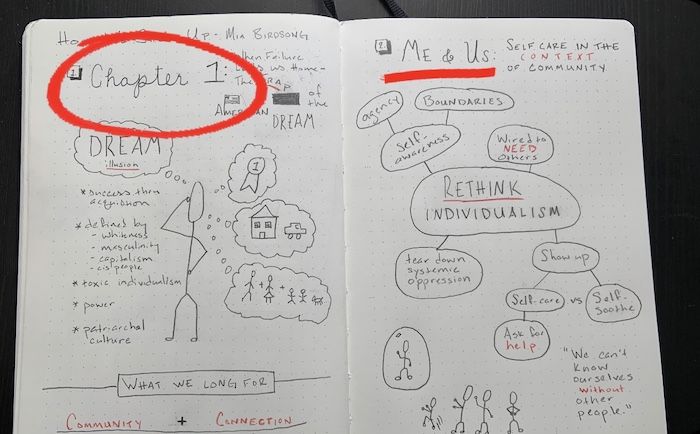 Up - Mia Birdsong
1 Chapter 1:
When Failure
Leads us Home -
The TRAP of the
AMERICAN DREAM
DREAM
illusion
1
* success thru
acquisition
* defined by
- whiteness
- masculinity
- capitalism
- cis people
* toxic individualism
* power
* patriarchal
culture
+ +
WHAT WE LONG FOR
COMMUNITY + CONNECTION
2 ME & US: SELF CARE IN THE
CONTEXT
OF COMMUNITY
agency
BOUNDARIES
Self-
awareness
Wired to
NEED
others
RETHINK
INDIVIDUALISM
tear down
systemic
oppression
Show up
Self-care vs Self-
Soothe
Ask for
help
"We can't
know
ourselves
without
other
people."